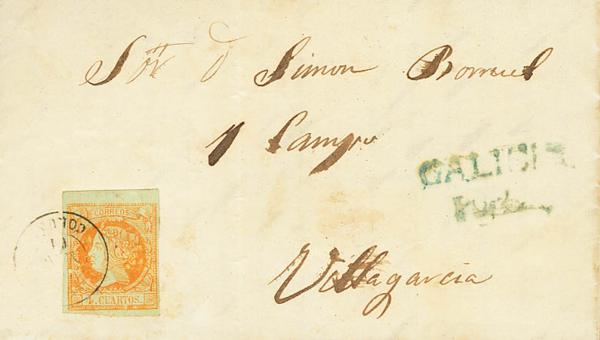 Sor d Simon Borruel
Campo
GALICIA
Villagarcia
CORREOS
4 CUARTOS.